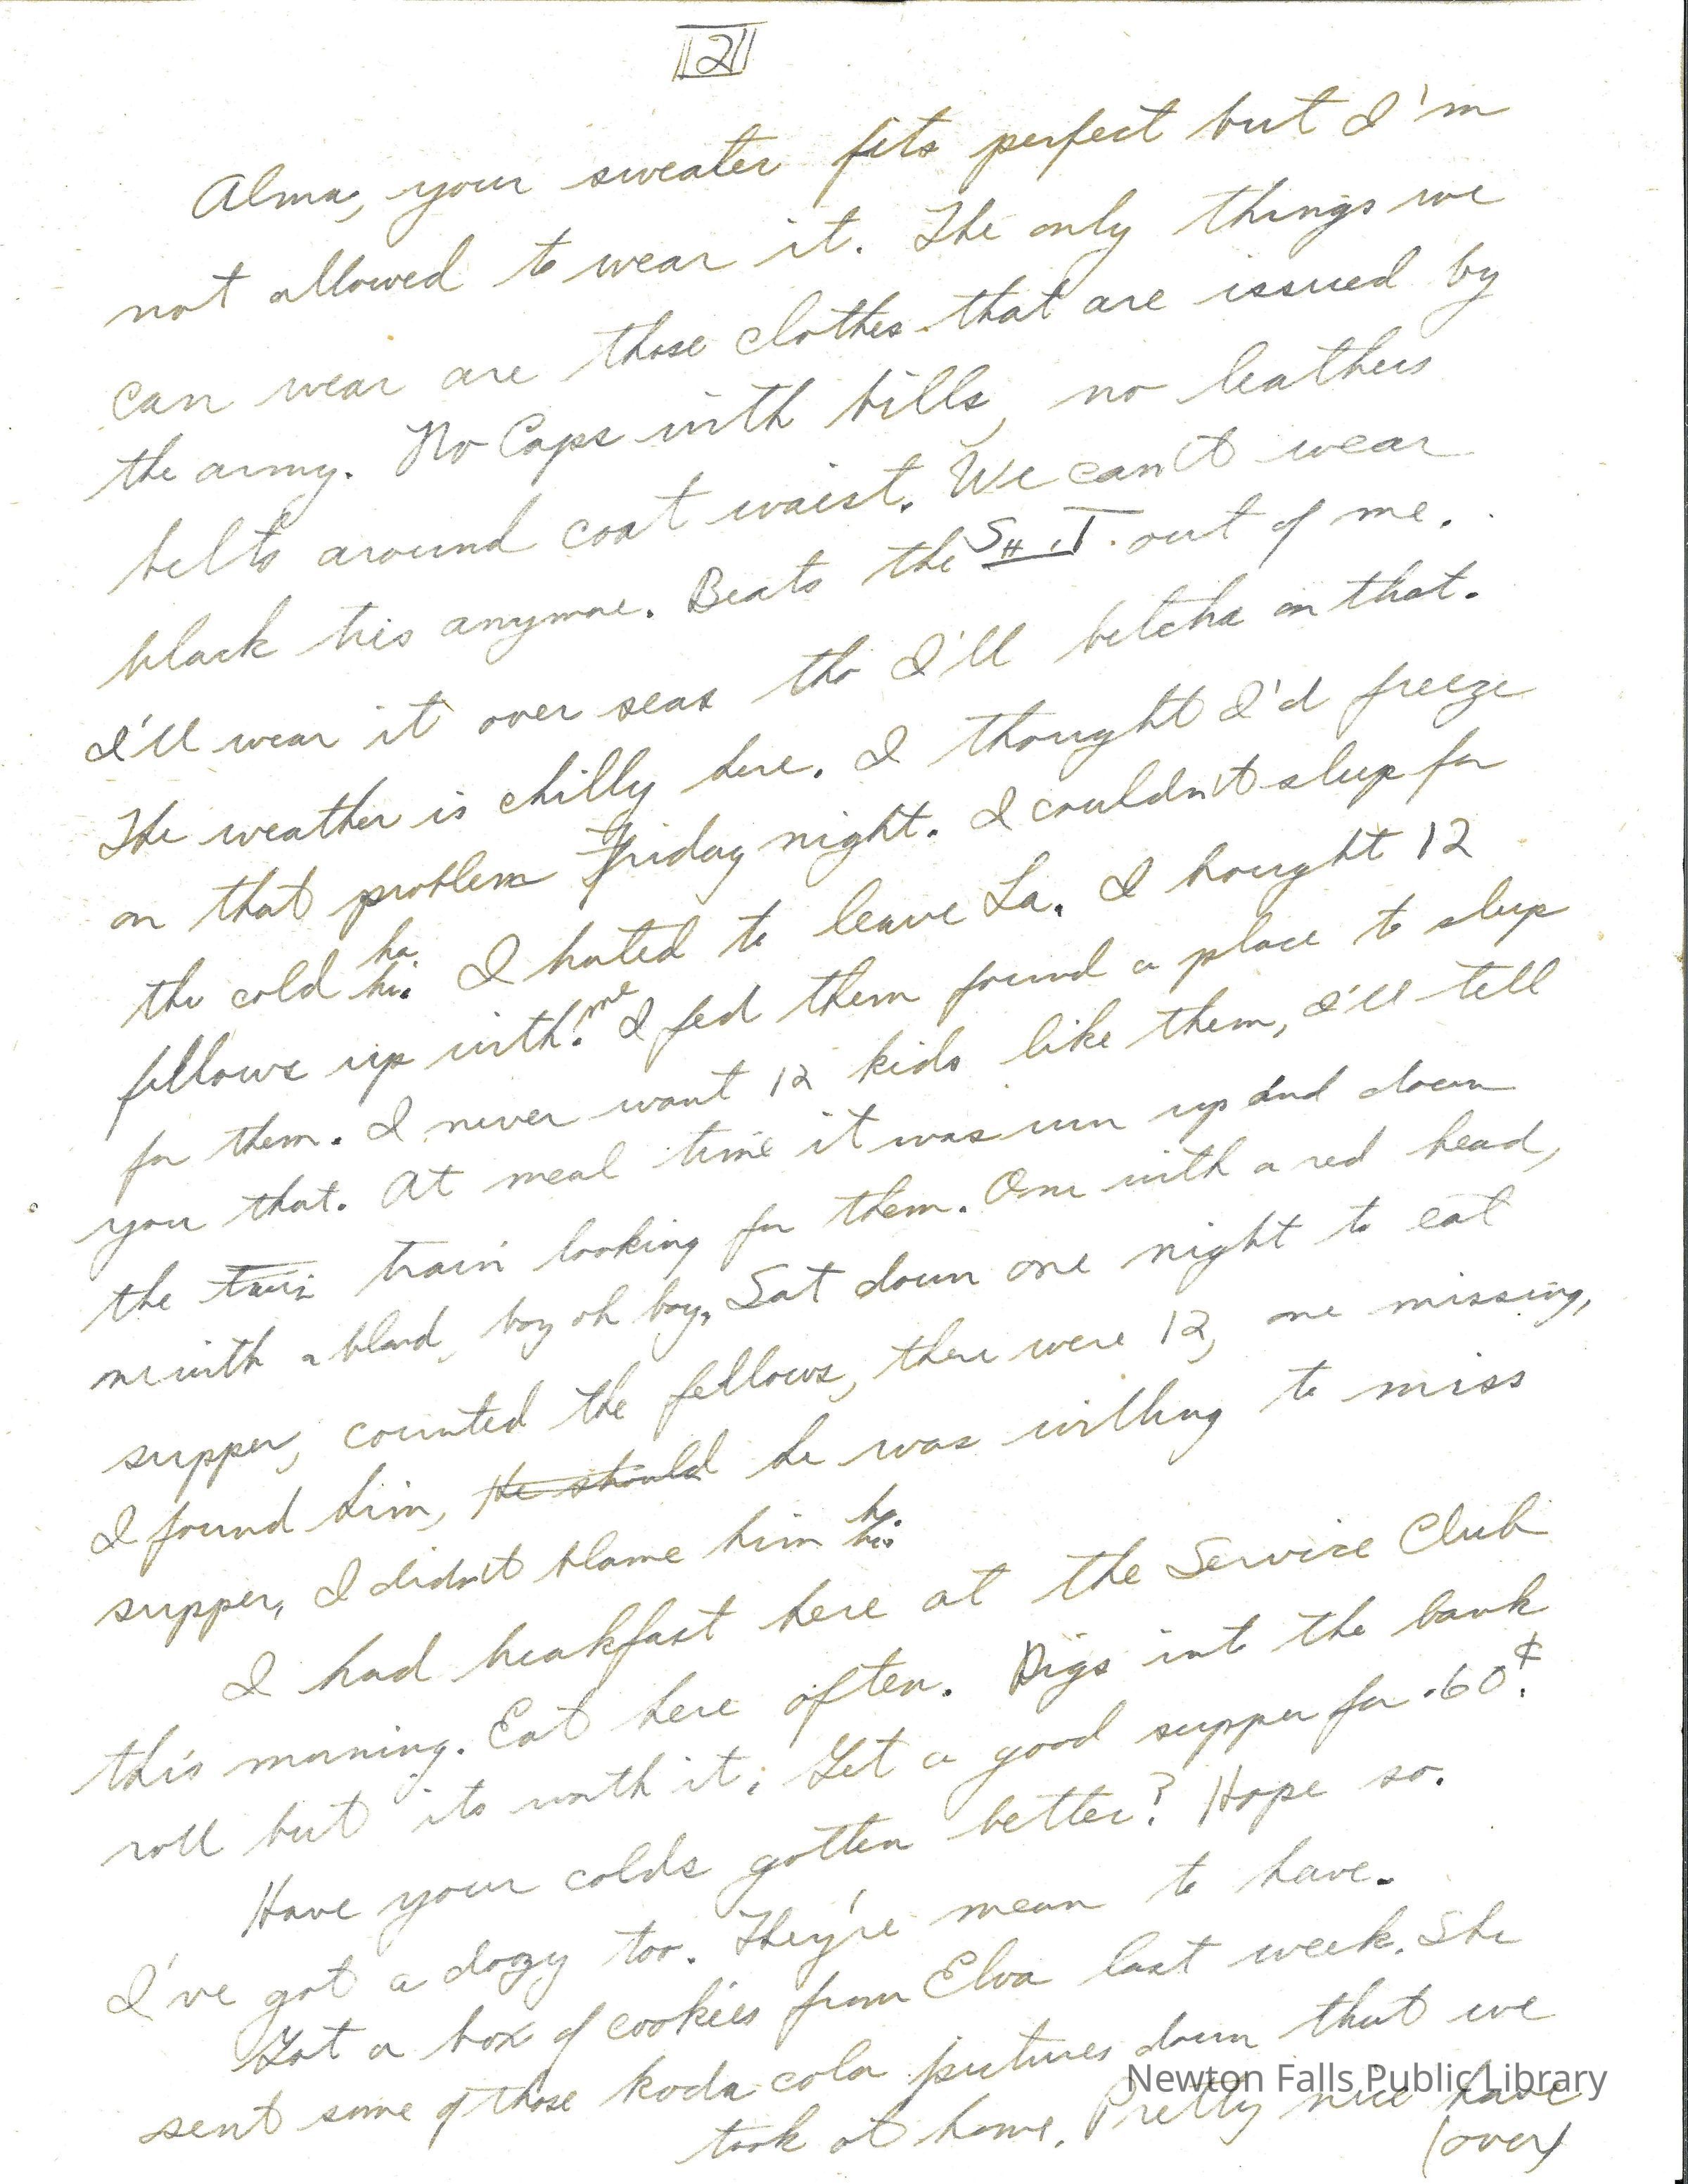 2
Alma, your sweater fits perfect but I'm
not allowed to wear it. The only things we
can wear are those clothes that are issued by
the army. No Caps with bills, no leathers
belts around coat waist. We can't wear
black ties anymore. Beats the S H I T. out of me.
I'll wear it over seas tho I'll betcha on that.
The weather is chilly here. I thought I'd freeze
on that problem Friday night. I couldn't sleep for
the cold ha hi. I hated to leave La. I bought 12
fellows up with me. I fed them found a place to sleep
for them. I never want 12 kids like them, I'll tell
you that. At meal time it was run up and down
the train looking for them. One with a red head,
with a blond, boy oh boy. Sat down one night to eat
supper, counted the fellows, there were 12, one missing,
I found him, He should he was willing to miss
supper, I didn't blame him ha hi.
I had breakfast here at the Service Club
this morning. Eat here often. Digs into the bank
roll but its worth it. Get a good supper for .60¢.
Have your colds gotten better? Hope so.
I've got a dozy too. They're mean to have.
Got a box of cookies from Elva last week. She
sent some of those koda color pictures down that we
took at home. Pretty nice have
(over)
Newton Falls Public Library